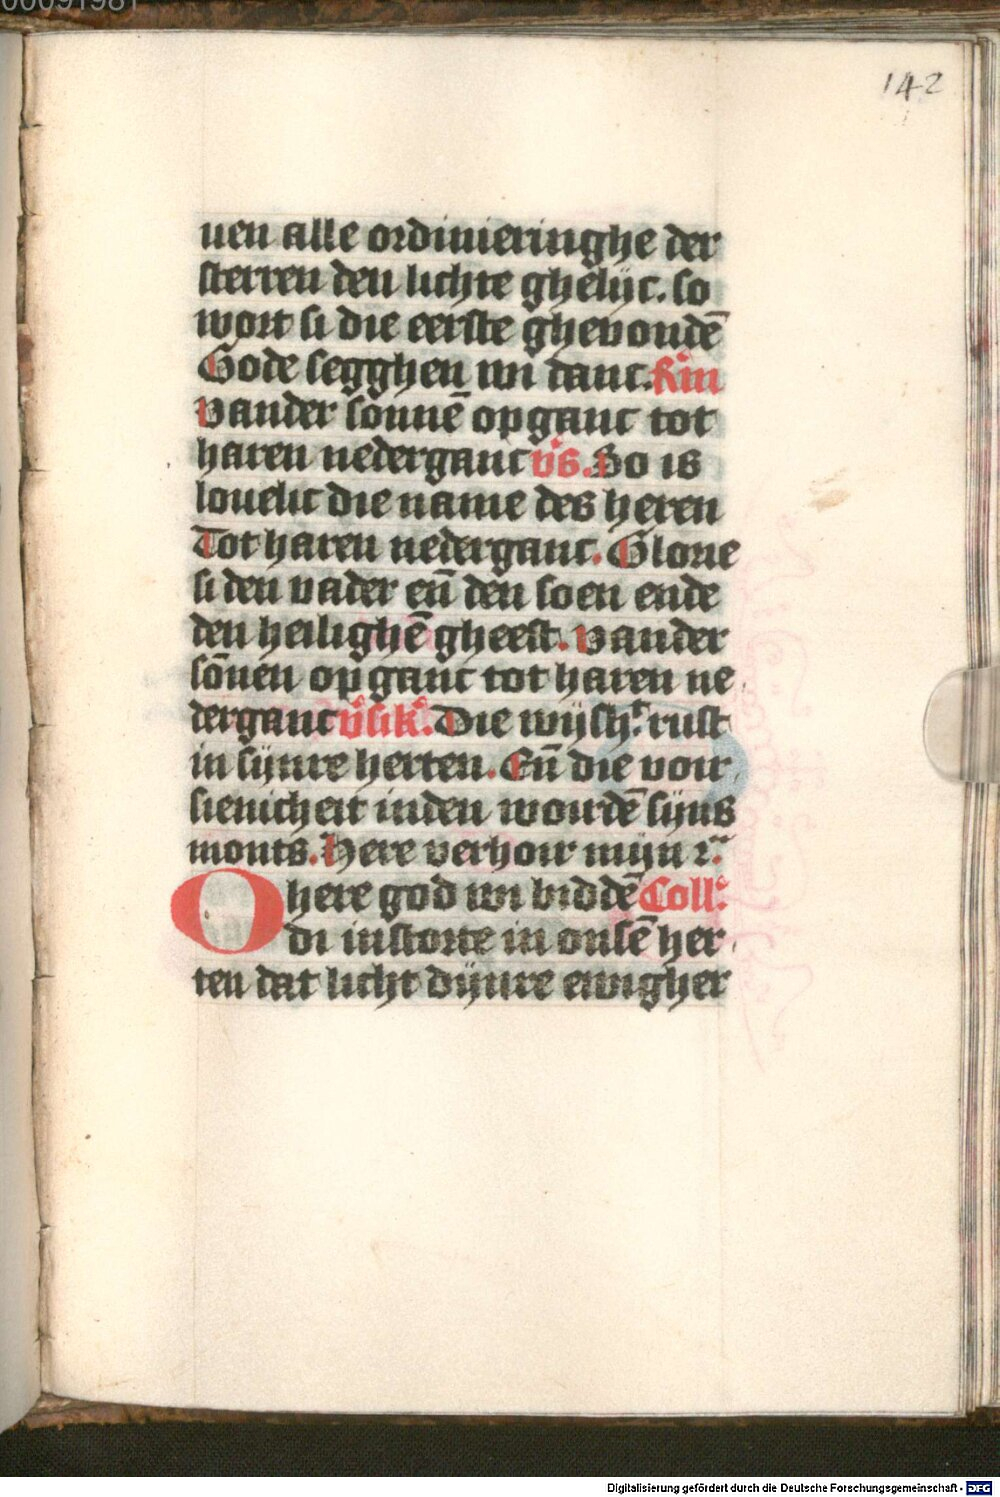 00091981
142
uen alle ordinieringhe der
sterren den lichte ghelijc. so
wort si die eerste gheuondē
Gode segghen wi danc. Rm̄
Vander sonnē opganc tot
haren nederganc v̄s. So is
louelic die name des heren
Tot haren nederganc. Glorie
si den vader eñ den soen ende
den heilighē gheest. Vander
sōnen opganc tot haren ne
derganc v̄sik. Die wijsh. rust
in sijnre herten. Eñ die voir
sienicheit inden wordē sijns
monts. Here verhoir mijn r̄.
O here god wi biddē Coll.
di instorte in onsē her
ten dat licht dijnre ewigher
Digitalisierung gefördert durch die Deutsche Forschungsgemeinschaft - DFG